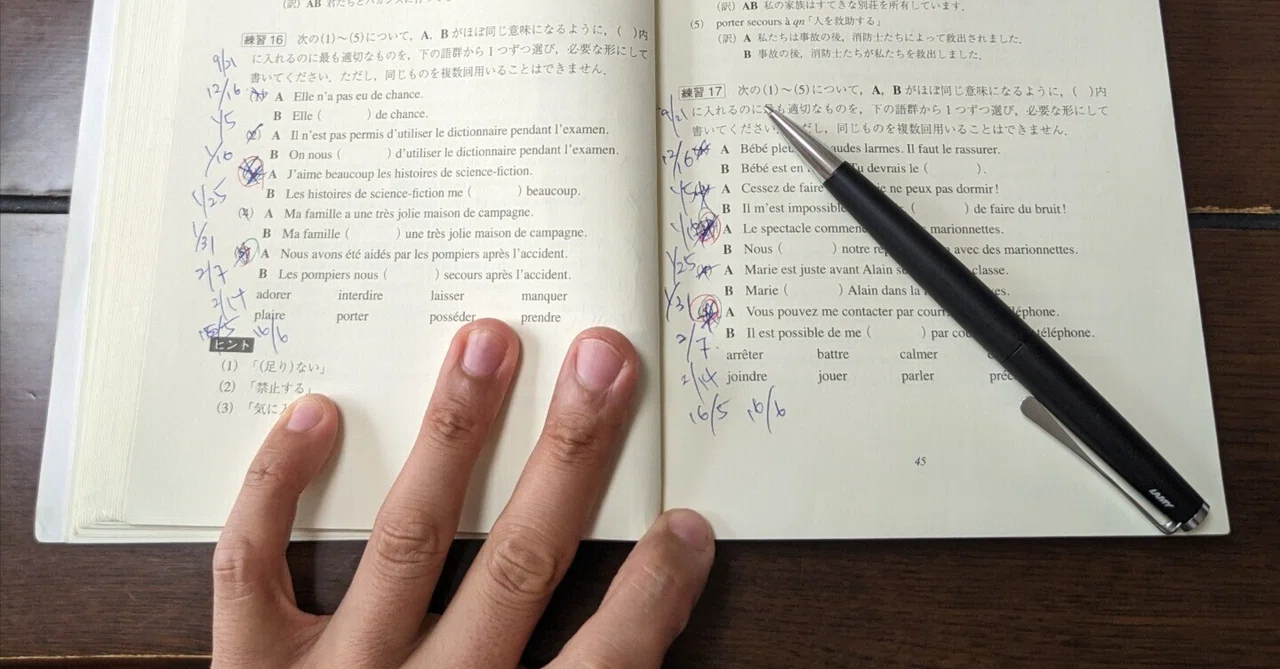 (訳) AB 君たちとバカンスに行
練習 16 次の(1)～(5)について，A，B がほぼ同じ意味になるように，( )内
に入れるのに最も適切なものを，下の語群から1つずつ選び，必要な形にして
書いてください．ただし，同じものを複数回用いることはできません．
A Elle n'a pas eu de chance.
B Elle ( ) de chance.
A Il n'est pas permis d'utiliser le dictionnaire pendant l'examen.
B On nous ( ) d'utiliser le dictionnaire pendant l'examen.
A J'aime beaucoup les histoires de science-fiction.
B Les histoires de science-fiction me ( ) beaucoup.
(4) A Ma famille a une très jolie maison de campagne.
B Ma famille ( ) une très jolie maison de campagne.
A Nous avons été aidés par les pompiers après l'accident.
B Les pompiers nous ( ) secours après l'accident.
adorer interdire laisser manquer
plaire porter posséder prendre
ヒント
(1) 「(足り)ない」
(2) 「禁止する」
(3) 「気に
9/21
12/16
1/5
1/10
1/25
1/31
2/7
2/14
16/5 16/6
(訳) AB 私の家族はすてきな別荘を所有しています．
(5) porter secours à qn「人を救助する」
(訳) A 私たちは事故の後，消防士たちによって救出されました．
B 事故の後，消防士たちが私たちを救出しました．
練習 17 次の(1)～(5)について，A，B がほぼ同じ意味になるように，( )内
に入れるのに も適切なものを，下の語群から1つずつ選び，必要な形にして
書いてください． だし，同じものを複数回用いることはできません．
A Bébé audes larmes. Il faut le rassurer.
B Bébé est en Tu devrais le ( ).
A Cessez de faire ne peux pas dormir!
B Il m'est impossible ( ) de faire du bruit!
A Le spectacle marionnettes.
B Nous ( ) notre avec des marionnettes.
A Marie est juste avant Alain classe.
B Marie ( ) Alain dans la
A Vous pouvez me contacter par
B Il est possible de me ( ) par téléphone.
arrêter battre calmer
joindre jouer parler
9/21
12/16
1/5
1/10
1/25
1/31
2/7
2/14
16/5 16/6
45
LAMY